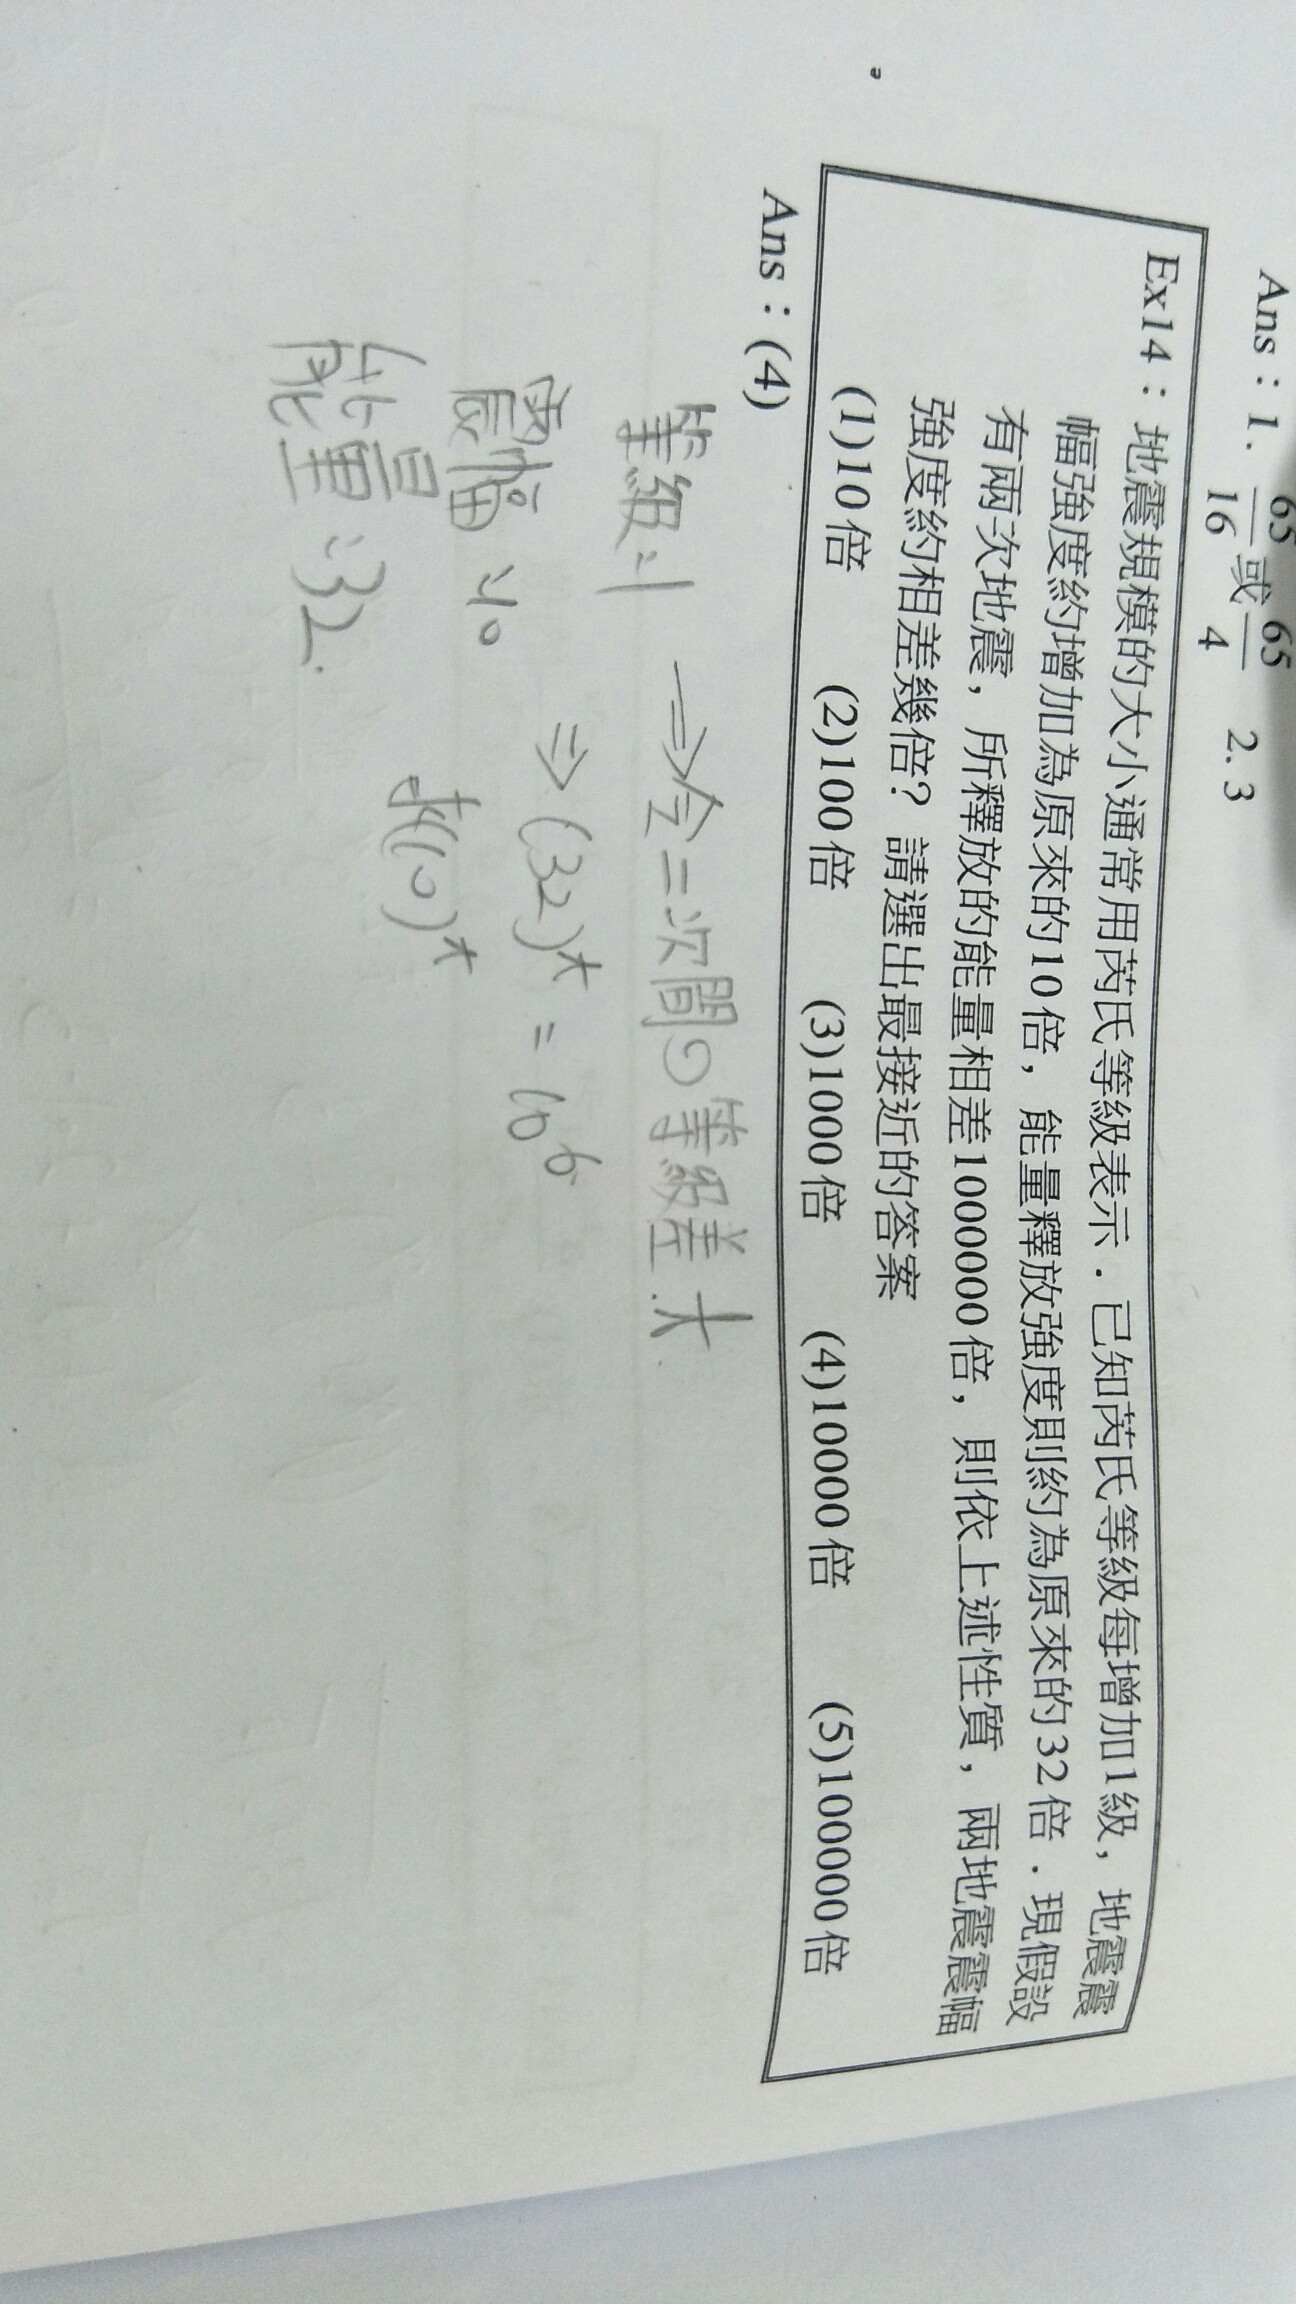 Ans：1. 65/16 或 65/4 2. 3
Ex14：地震規模的大小通常用芮氏等級表示．已知芮氏等級每增加1級，地震震
幅強度約增加為原來的10倍，能量釋放強度則約為原來的32倍．現假設
有兩次地震，所釋放的能量相差1000000倍，則依上述性質，兩地震震幅
強度約相差幾倍？請選出最接近的答案
(1)10倍 (2)100倍 (3)1000倍 (4)10000倍 (5)100000倍
Ans：(4)
等級：1 ⇒ 令二次間の等級差 x
震幅：10 ⇒ (32)^x = 10^6
能量：32. 求(10)^x